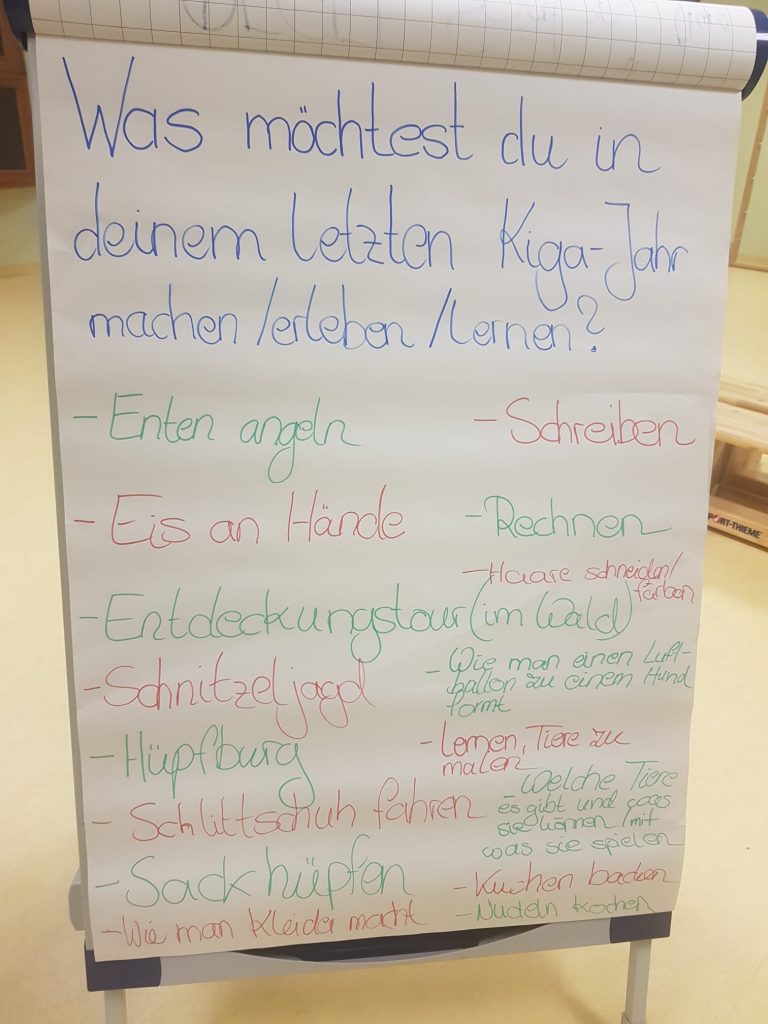 Was möchtest du in
deinem letzten Kiga-Jahr
machen/erleben/lernen?
- Enten angeln
- Eis an Hände
- Entdeckungstour (im Wald)
- Schnitzeljagd
- Hüpfburg
- Schlittschuh fahren
- Sackhüpfen
- Wie man Kleider macht
- Schreiben
- Rechnen
- Haare schneiden/
färben
- Wie man einen Luft-
ballon zu einem Hund
formt
- Lernen, Tiere zu
malen
- Welche Tiere
es gibt und was
sie können/mit
was sie spielen
- Kuchen backen
- Nudeln kochen
SPORT-THIEME